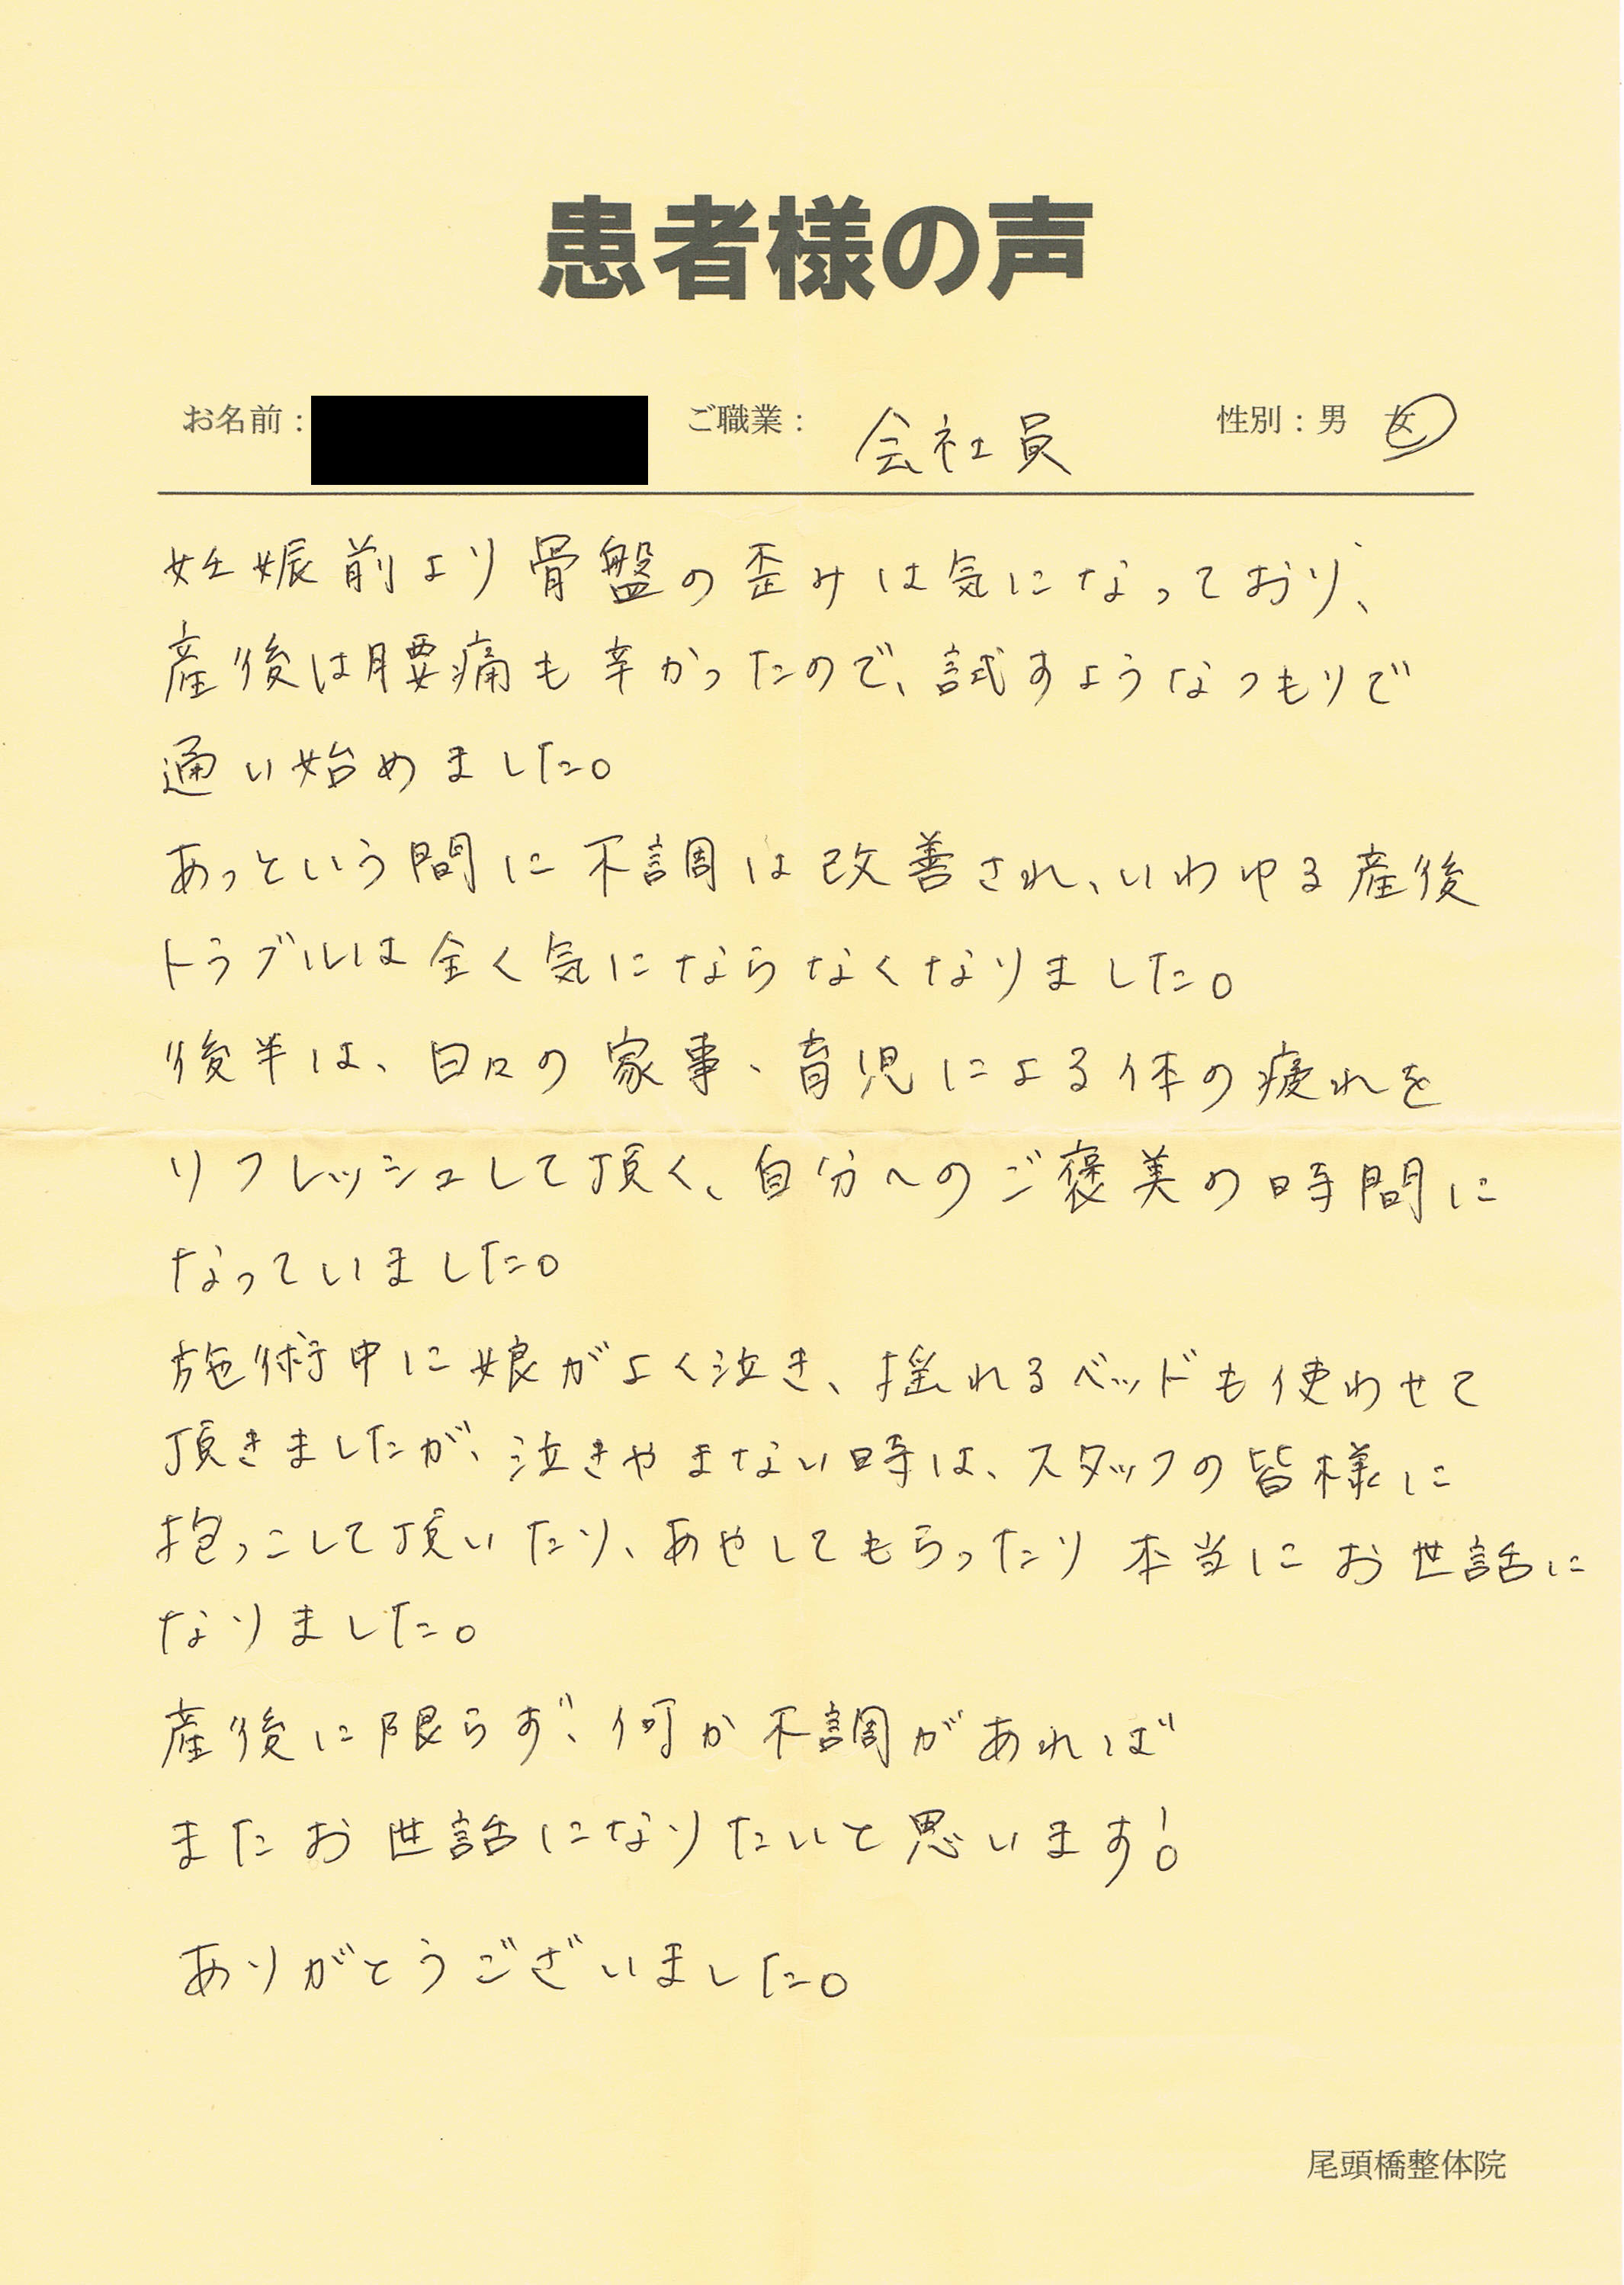 患者様の声
お名前： ご職業： 会社員 性別：男 女
妊娠前より骨盤の歪みは気になっており、
産後は腰痛も辛かったので、試すようなつもりで
通い始めました。
あっという間に不調は改善され、いわゆる産後
トラブルは全く気にならなくなりました。
後半は、日々の家事、育児による体の疲れを
リフレッシュして頂く、自分へのご褒美の時間に
なっていました。
施術中に娘がよく泣き、揺れるベッドも使わせて
頂きましたが、泣きやまない時は、スタッフの皆様に
抱っこして頂いたり、あやしてもらったり本当にお世話に
なりました。
産後に限らず、何か不調があれば
またお世話になりたいと思います！
ありがとうございました。
尾頭橋整体院